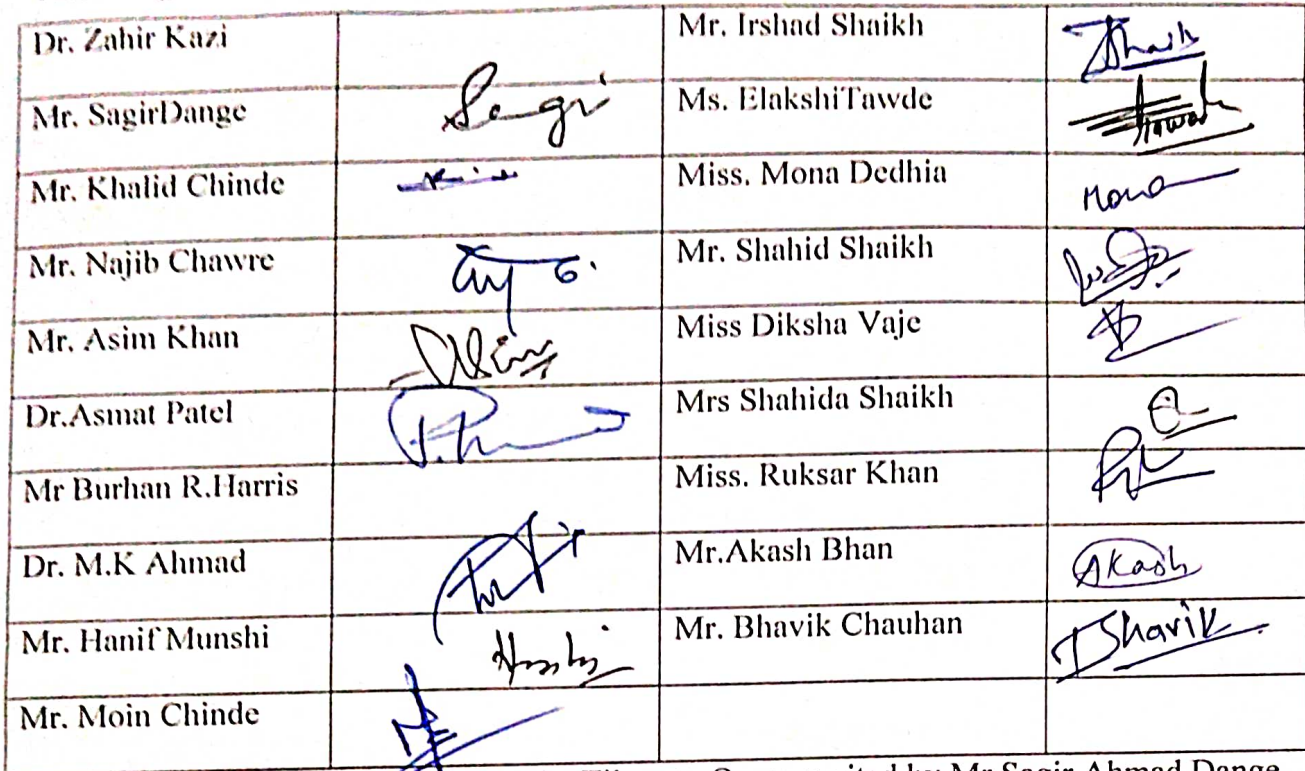 Dr. Zahir Kazi Mr. Irshad Shaikh
Mr. SagirDange Sagir Ms. ElakshiTawde
Mr. Khalid Chinde Miss. Mona Dedhia Mona
Mr. Najib Chawre Mr. Shahid Shaikh
Mr. Asim Khan Asim Miss Diksha Vaje
Dr.Asmat Patel Mrs Shahida Shaikh
Mr Burhan R.Harris Miss. Ruksar Khan
Dr. M.K Ahmad Mr.Akash Bhan Akash
Mr. Hanif Munshi Mr. Bhavik Chauhan Bhavik
Mr. Moin Chinde
by Mr Sagir Ahmad Dange